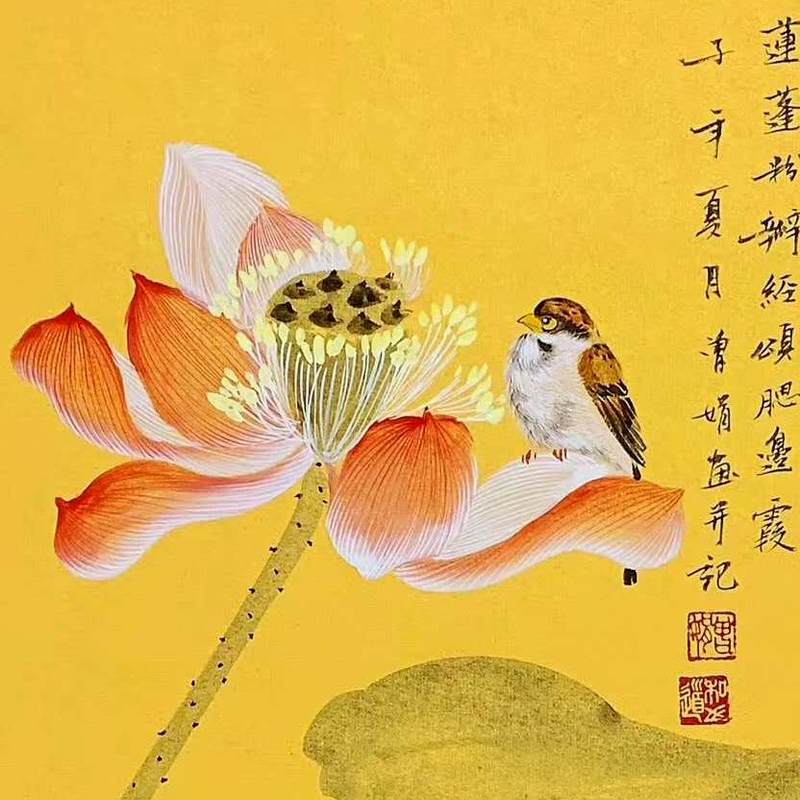 蓮蓬粉瓣經頌腮邊霞
子年夏月曾娟画并記